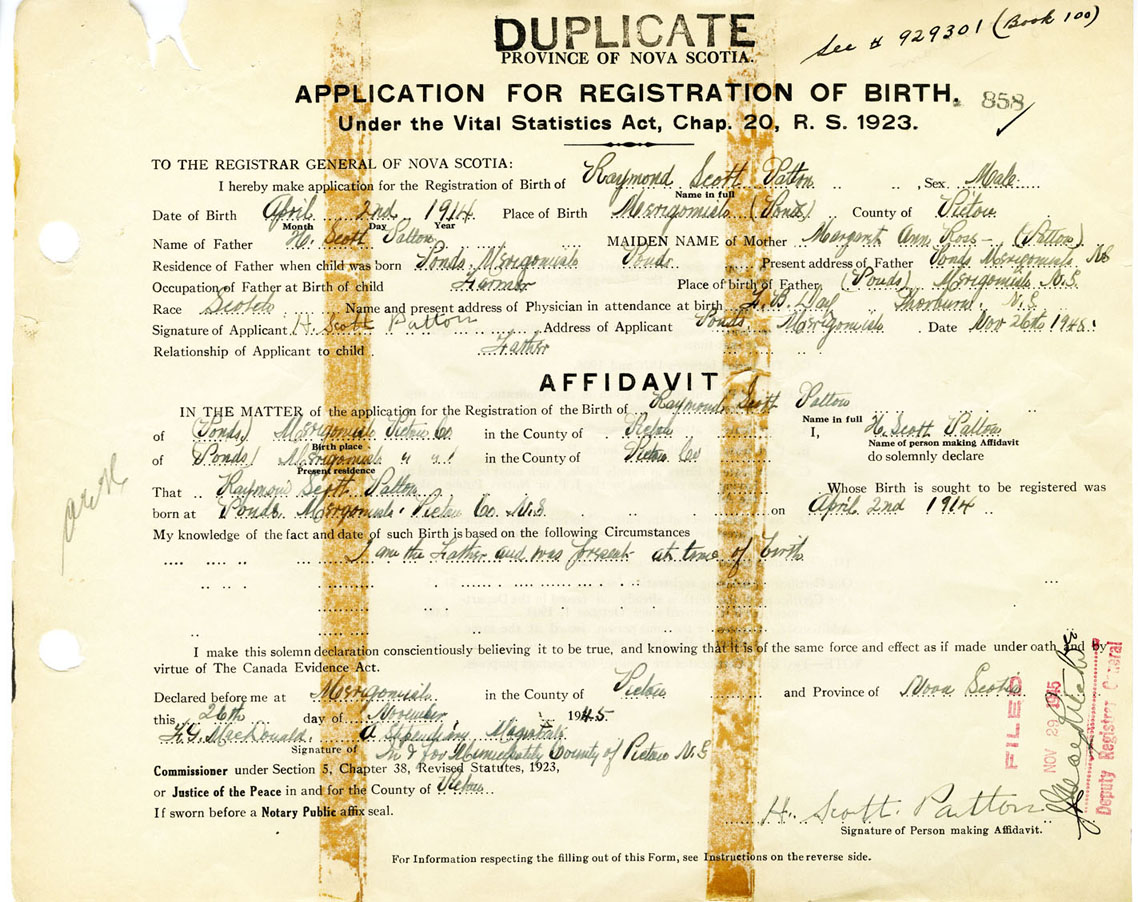 DUPLICATE
See # 929301 (Book 100)
PROVINCE OF NOVA SCOTIA.
APPLICATION FOR REGISTRATION OF BIRTH. 858
Under the Vital Statistics Act, Chap. 20, R. S. 1923.
TO THE REGISTRAR GENERAL OF NOVA SCOTIA:
I hereby make application for the Registration of Birth of Raymond Scott Patton , Sex Male
Name in full
Date of Birth April 2nd 1914 Place of Birth Merigomish (Ponds) County of Pictou
Month Day Year
Name of Father H. Scott Patton MAIDEN NAME of Mother Margaret Ann Ross - (Patton)
Residence of Father when child was born Ponds, Merigomish Ponds Present address of Father Ponds Merigomish NS
Occupation of Father at Birth of child Farmer Place of birth of Father (Ponds) Merigomish N.S.
Race Scotch Name and present address of Physician in attendance at birth Thorburn, N.S.
Signature of Applicant H. Scott Patton Address of Applicant Ponds, Merigomish Date Nov 26th 1945
Relationship of Applicant to child Father
AFFIDAVIT
IN THE MATTER of the application for the Registration of the Birth of Raymond Scott Patton
Name in full
of (Ponds) Merigomish Pictou Co in the County of Pictou I, H. Scott Patton
Birth place Name of person making Affidavit
of (Ponds) Merigomish " " in the County of Pictou Co do solemnly declare
Present residence
That Raymond Scott Patton Whose Birth is sought to be registered was
born at Ponds Merigomish Pictou Co. N.S. on April 2nd 1914
My knowledge of the fact and date of such Birth is based on the following Circumstances
I am the Father and was present at time of birth
I make this solemn declaration conscientiously believing it to be true, and knowing that it is of the same force and effect as if made under oath and by
virtue of The Canada Evidence Act.
Declared before me at Merigomish in the County of Pictou and Province of Nova Scotia
this 26th day of November 1945.
MacDonald. A Stipendiary Magistrate
Signature of In & for Municipality County of Pictou N.S
Commissioner under Section 5, Chapter 38, Revised Statutes, 1923,
or Justice of the Peace in and for the County of Pictou
If sworn before a Notary Public affix seal.
H. Scott Patton
Signature of Person making Affidavit.
For Information respecting the filling out of this Form, see Instructions on the reverse side.
FILED
NOV 29 1945
Deputy Registrar General